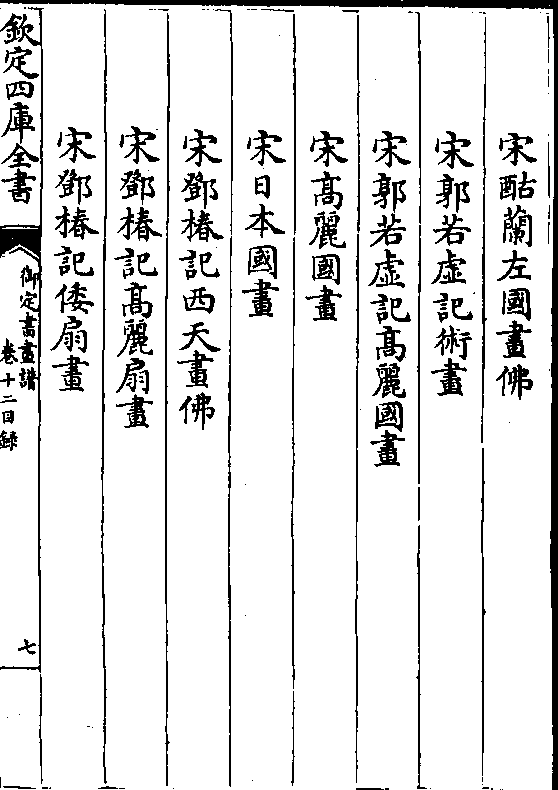 宋酤蘭左國畫佛
宋郭若虛記術畫
宋郭若虛記髙麗國畫
宋髙麗國畫
宋日本國畫
宋鄧椿記西天畫佛
宋鄧椿記髙麗扇畫
宋鄧椿記倭扇畫
欽定四庫全書
御定書畫譜
卷十二目録
七